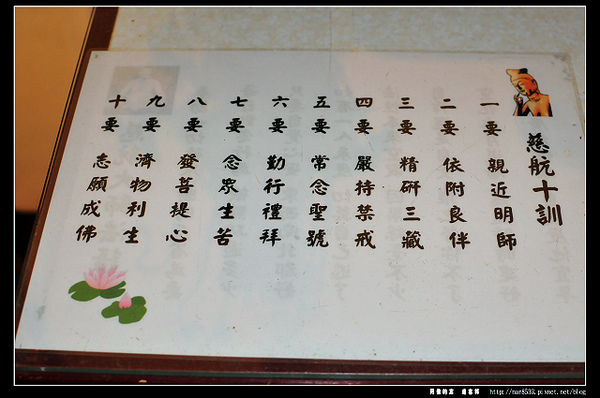 慈航十訓
一要 親近明師
二要 依附良伴
三要 精研三藏
四要 嚴持禁戒
五要 常念聖號
六要 勤行禮拜
七要 念眾生苦
八要 發菩提心
九要 濟物利生
十要 志願成佛
http://nar8533.pixnet.net/blog